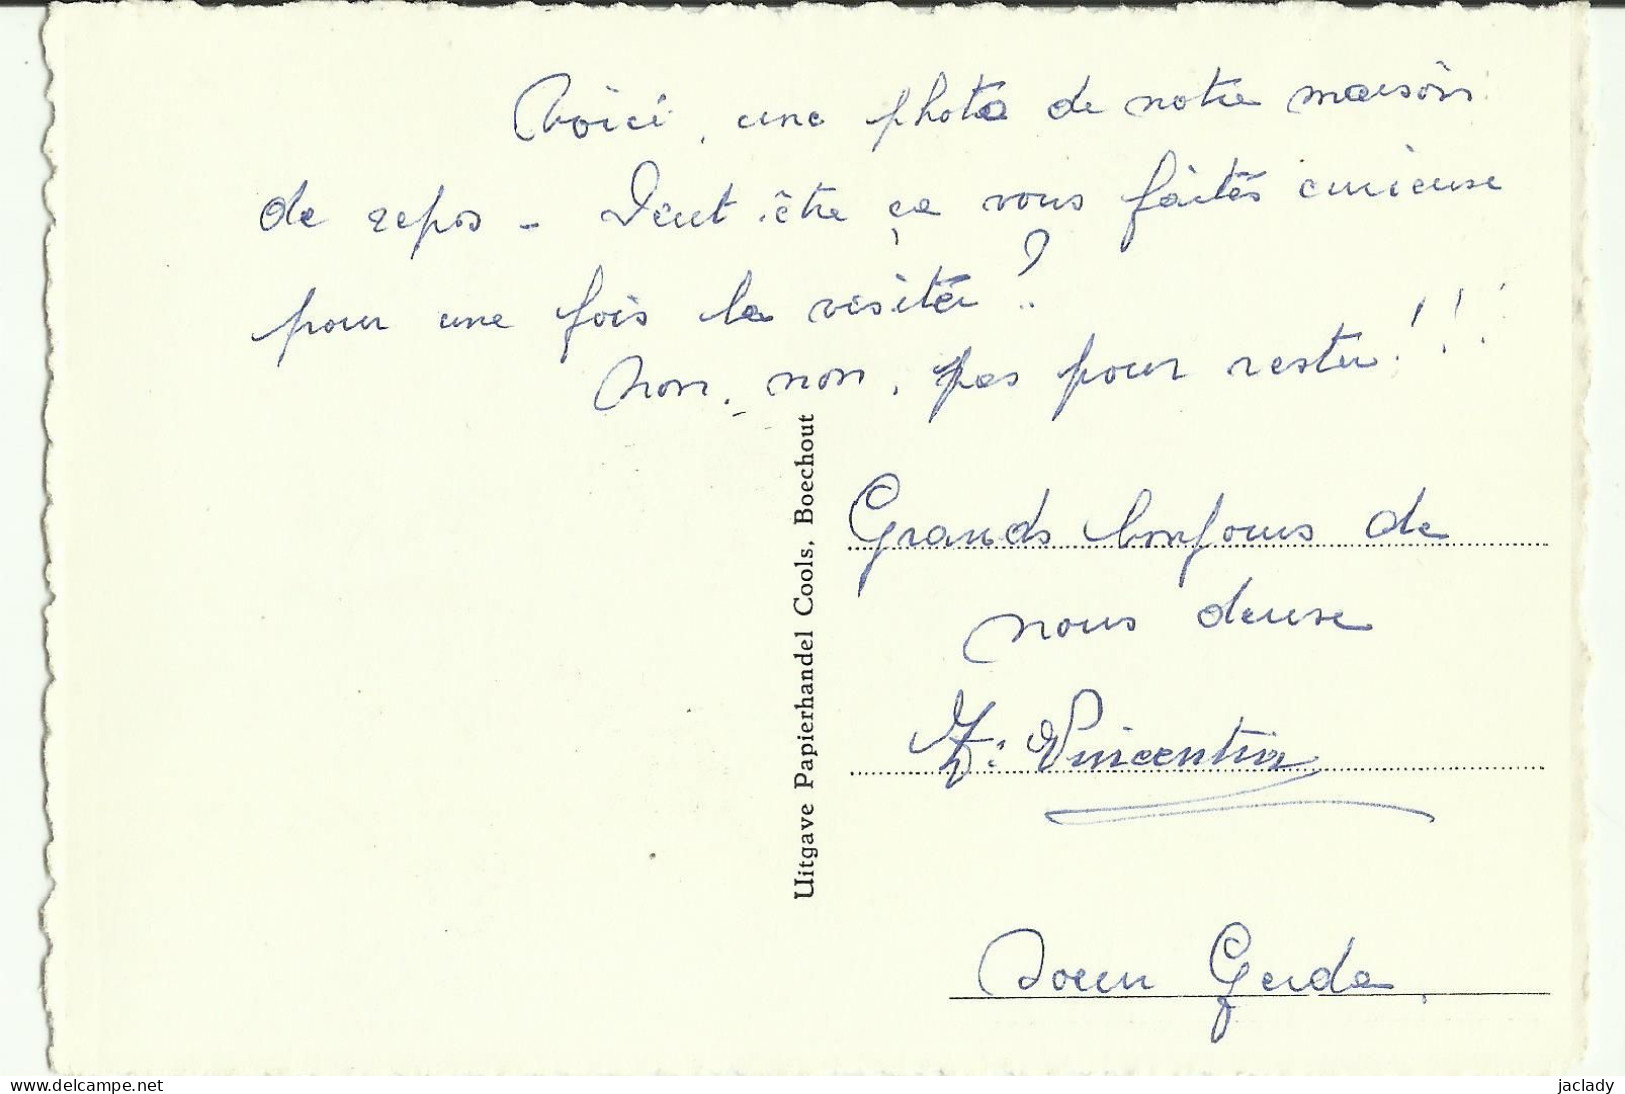 Voici, une photo de notre maison
de repos - Peut-être ça vous faites curieuse
pour une fois la visiter?
Non, non, pas pour rester!!!
Uitgave Papierhandel Cools, Boechout
Grands bonjours de
nous deuse
Z: Vincentia
Soeur Gerda.
delcampe.net
jaclady